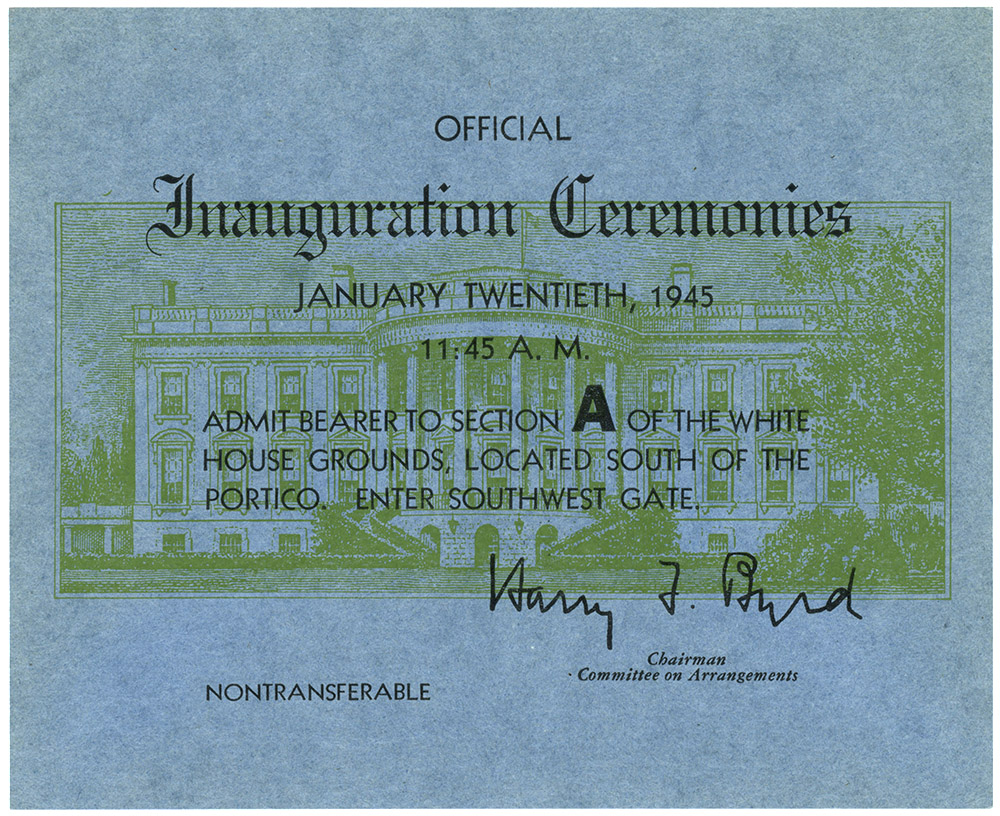 OFFICIAL
Inauguration Ceremonies
JANUARY TWENTIETH, 1945
11:45 A. M.
ADMIT BEARER TO SECTION A OF THE WHITE
HOUSE GROUNDS, LOCATED SOUTH OF THE
PORTICO. ENTER SOUTHWEST GATE.
Harry F. Byrd
Chairman
Committee on Arrangements
NONTRANSFERABLE